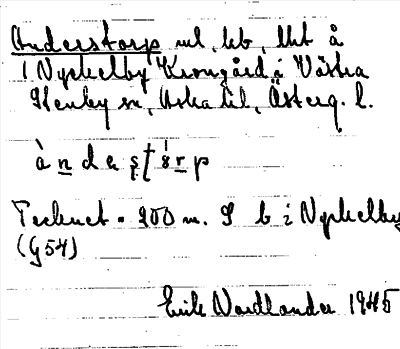 Anderstorp ul, lb, lht å
1 Nyckelby Kronogård i Västra
Stenby sn, Aska hd, Österg. l.
àndeṣṭȯrp
Tecknet • 200 m. S b i Nyckelby
(G54)
Erik Nordlander 1945